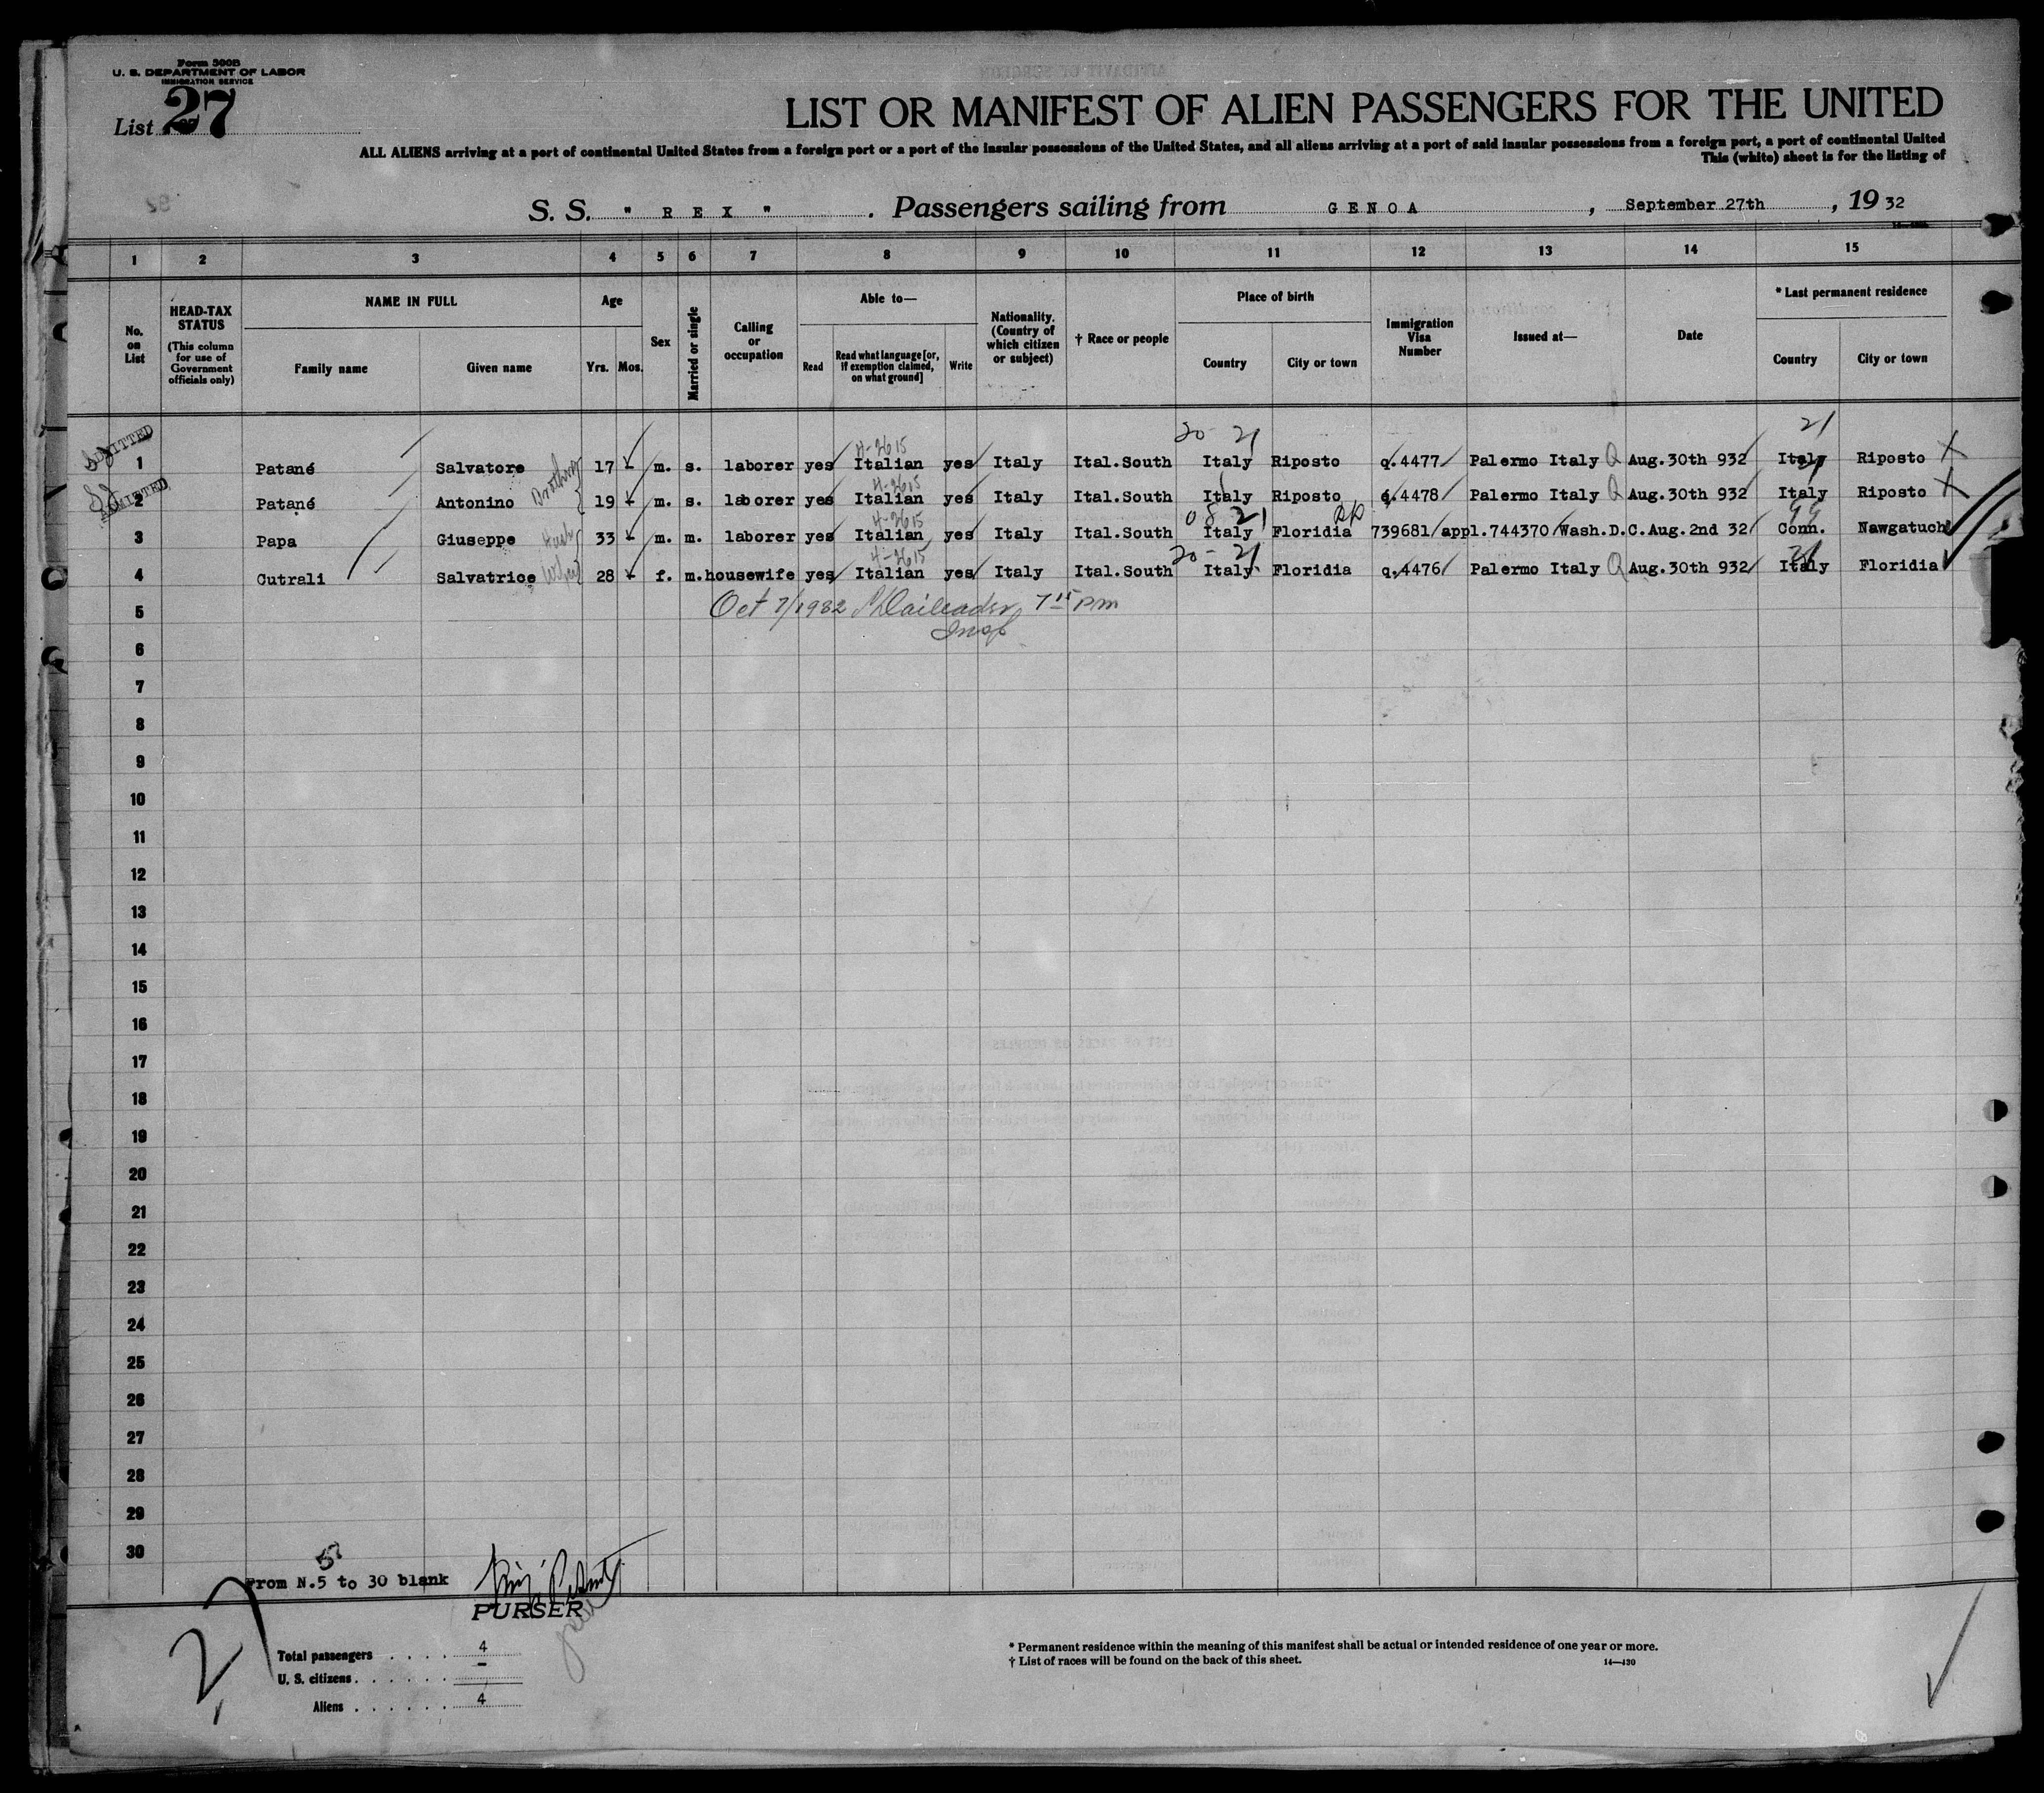 Form 500B
U. S. DEPARTMENT OF LABOR
IMMIGRATION SERVICE
List 27
LIST OR MANIFEST OF ALIEN PASSENGERS FOR THE UNITED
ALL ALIENS arriving at a port of continental United States from a foreign port or a port of the insular possessions of the United States, and all aliens arriving at a port of said insular possessions from a foreign port, a port of continental United
This (white) sheet is for the listing of
S. S. " R E X " . Passengers sailing from G E N O A , September 27th , 19 32
1 2 3 4 5 6 7 8 9 10 11 12 13 14 15
No. on List
HEAD-TAX STATUS (This column for use of Government officials only)
NAME IN FULL Family name Given name
Age Yrs. Mos.
Sex
Married or single
Calling or occupation
Able to— Read Read what language [or, if exemption claimed, on what ground] Write
Nationality. (Country of which citizen or subject)
† Race or people
Place of birth Country City or town
Immigration Visa Number
Issued at—
Date
* Last permanent residence Country City or town
20 - 21 21
ADMITTED 4-2615
1 Patané Salvatore Brothers 17 - m. s. laborer yes Italian yes Italy Ital.South Italy Riposto q.4477 Palermo Italy Q Aug.30th 932 Italy Riposto X
ADMITTED 4-2615
2 Patané Antonino 19 - m. s. laborer yes Italian yes Italy Ital.South Italy Riposto q.4478 Palermo Italy Q Aug.30th 932 Italy Riposto X
4-2615 08 21
3 Papa Giuseppe 33 - m. m. laborer yes Italian yes Italy Ital.South Italy Floridia 739681/appl.744370/Wash.D.C.Aug.2nd 32 Conn. Nawgatuch
4-2615 20 - 21
4 Cutrali Salvatrice 28 - f. m. housewife yes Italian yes Italy Ital.South Italy Floridia q.4476 Palermo Italy Q Aug.30th 932 Italy Floridia
5 Oct 7/1932 7 15 pm
Insp
6
7
8
9
10
11
12
13
14
15
16
17
18
19
20
21
22
23
24
25
26
27
28
29
30
From N.5 to 30 blank
PURSER
27
Total passengers . . . . 4
U. S. citizens . . . . . . -
Aliens . . . . . . 4
* Permanent residence within the meaning of this manifest shall be actual or intended residence of one year or more.
† List of races will be found on the back of this sheet. 14—430